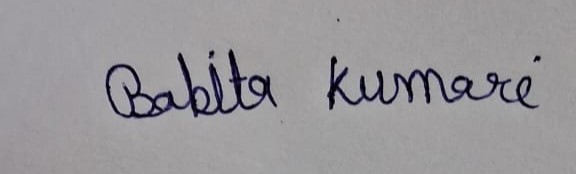 Babita Kumari